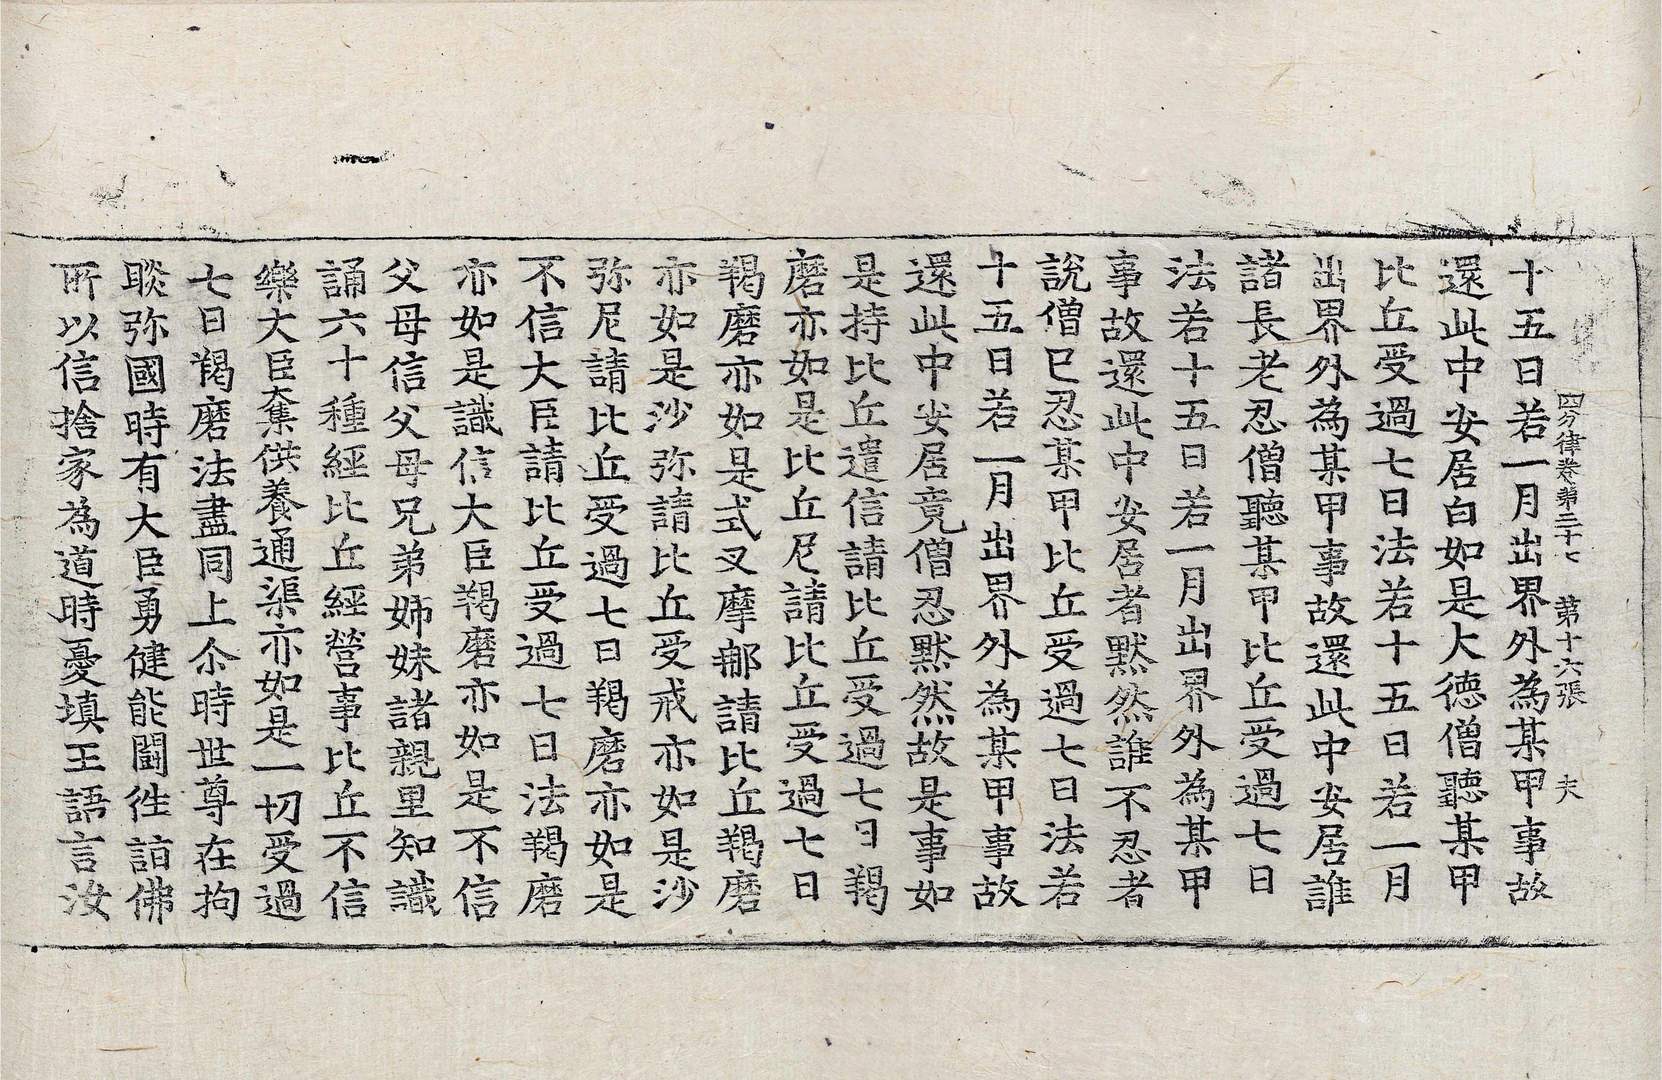 四分律卷第三十七　第十六張　夫
十五日若一月出界外為某甲事故
還此中安居白如是大德僧聽某甲
比丘受過七日法若十五日若一月
出界外為某甲事故還此中安居誰
諸長老忍僧聽某甲比丘受過七日
法若十五日若一月出界外為某甲
事故還此中安居者默然誰不忍者
說僧已忍某甲比丘受過七日法若
十五日若一月出界外為某甲事故
還此中安居竟僧忍默然故是事如
是持比丘遣信請比丘受過七日羯
磨亦如是比丘尼請比丘受過七日
羯磨亦如是式叉摩那請比丘羯磨
亦如是沙弥請比丘受戒亦如是沙
弥尼請比丘受過七日羯磨亦如是
不信大臣請比丘受過七日法羯磨
亦如是識信大臣羯磨亦如是不信
父母信父母兄弟姉妹諸親里知識
誦六十種經比丘經營事比丘不信
樂大臣奪供養通渠亦如是一切受過
七日羯磨法盡同上尒時世尊在拘
睒弥國時有大臣勇健能鬪徃詣佛
所以信捨家為道時憂填王語言汝